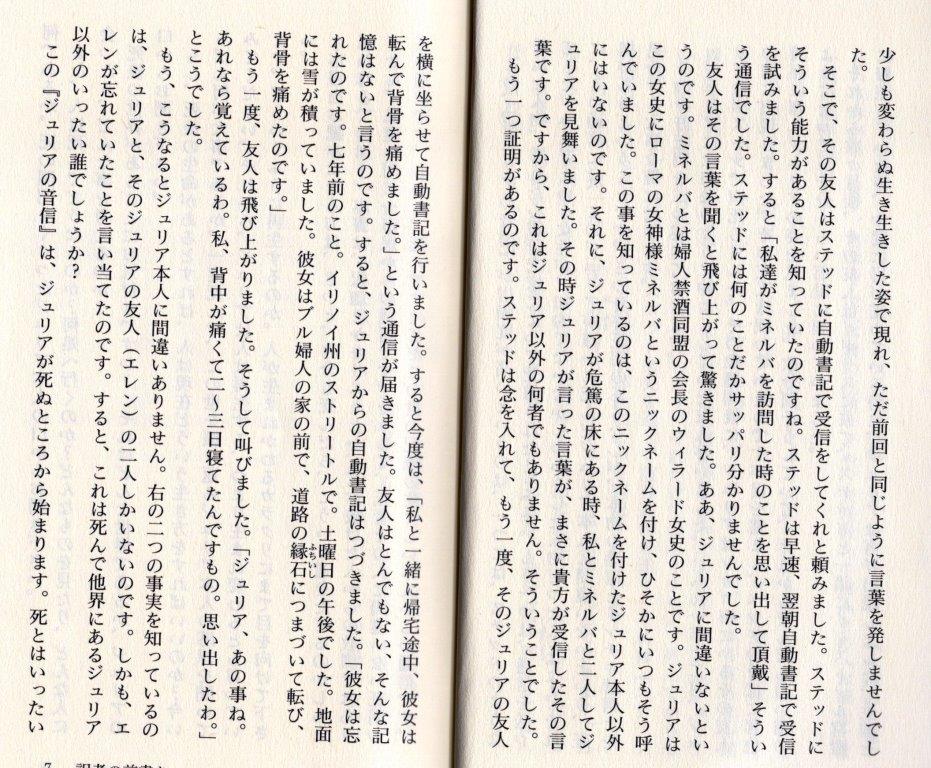 少しも変わらぬ生き生きした姿で現れ、ただ前回と同じように言葉を発しませんでし
た。
そこで、その友人はステッドに自動書記で受信をしてくれと頼みました。ステッドに
そういう能力があることを知っていたのですね。ステッドは早速、翌朝自動書記で受信
を試みました。すると「私達がミネルバを訪問した時のことを思い出して頂戴」そうい
う通信でした。ステッドには何のことだかサッパリ分かりませんでした。
友人はその言葉を聞くと飛び上がって驚きました。ああ、ジュリアに間違いないとい
うのです。ミネルバとは婦人禁酒同盟の会長のウィラード女史のことです。ジュリアは
この女史にローマの女神様ミネルバというニックネームを付け、ひそかにいつもそう呼
んでいました。この事を知っているのは、このニックネームを付けたジュリア本人以外
にはいないのです。それに、ジュリアが危篤の床にある時、私とミネルバと二人してジ
ュリアを見舞いました。その時ジュリアが言った言葉が、まさに貴方が受信したその言
葉です。ですから、これはジュリア以外の何者でもありません。そういうことでした。
もう一つ証明があるのです。ステッドは念を入れて、もう一度、そのジュリアの友人
を横に坐らせて自動書記を行いました。すると今度は、「私と一緒に帰宅途中、彼女は
転んで背骨を痛めました。」という通信が届きました。友人はとんでもない、そんな記
憶はないと言うのです。すると、ジュリアからの自動書記はつづきました。「彼女は忘
れたのです。七年前のこと。イリノイ州のストリートルで。土曜日の午後でした。地面
には雪が積っていました。彼女はブル婦人の家の前で、道路の縁石ふちいしにつまづいて転び、
背骨を痛めたのです。」
もう一度、友人は飛び上がりました。そうして叫びました。「ジュリア、あの事ね。
あれなら覚えているわ。私、背中が痛くて二～三日寝てたんですもの。思い出したわ。」
とこうでした。
もう、こうなるとジュリア本人に間違いありません。右の二つの事実を知っているの
は、ジュリアと、そのジュリアの友人（エレン）の二人しかいないのです。しかも、エ
レンが忘れていたことを言い当てたのです。すると、これは死んで他界にあるジュリア
以外のいったい誰でしょうか？
この『ジュリアの音信』は、ジュリアが死ぬところから始まります。死とはいったい